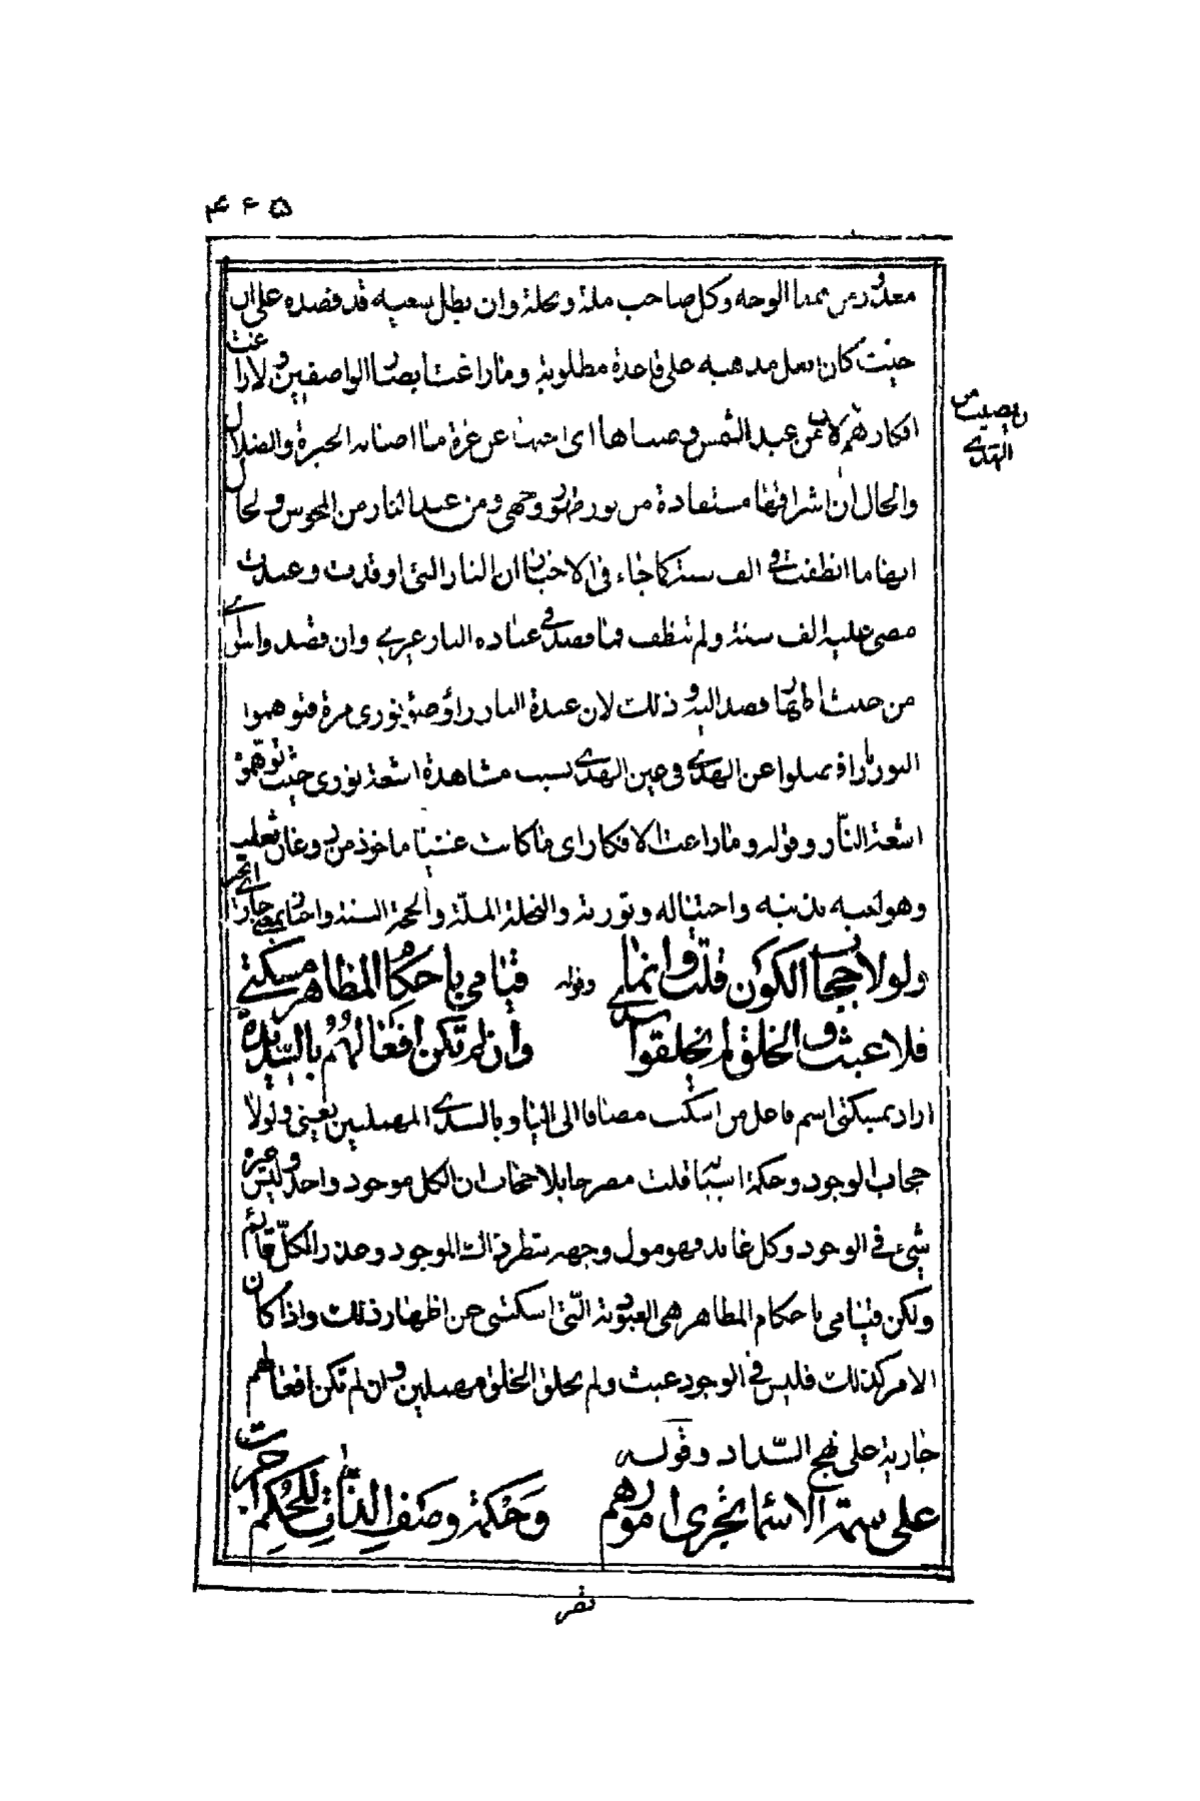 ٤٦٥
معذور من هذا الوجه وكل صاحب ملة ونحلة وان بطل سعيه قد قصده على ان
حيث كان اصل مذهبه على قاعدة مطلوبة وما زاغت ابصار الواصفين ولا زاغت
افكارهم لان من عبد الشمس وصباها اى احبها عن غرة ما اصابه الحيرة والضلال
والحال ان اشراقها مستفادة من نور ظهور وجهى ومن عبد النار من المجوس والحال
ايضا ما انطفت فى الف سنة كما جاء فى الاخبار ان النار التى اوقدت وعبدت
مضى عليه الف سنة ولم تنطف فما قصد فى عباده النار غيرى وان قصد واسوائى
من حيث الظهر قصد اليه وذلك لان عبدة النار راؤ ضوء نورى مرة فتوهموا
النور نارا فضلوا عن الهدى فى عين الهدى بسبب مشاهدة اشعة نورى حيث توهموا
اشعة النار وقوله وما راغت الافكار اى ما كانت ماخوذ من روغان ثعلب
وهو لعبه بذنبه واحتياله وتوريته والنحلة الملّة والحجة السنة
ولولا حجاب الكون قلت وانما وقوله قيامى باحكام المظاهر مسكتى
فلا عبث والخلق لم يخلقوا سدى وان لم تكن افعالهم بالسّديدة
اراد بمسكتى اسم فاعل من اسكت مضافا الى الياء وبالسدى المهملين يعنى ولولا
حجاب الوجود وحكمة اسبابه قلت مصرحا بلا حجاب ان الكل موجود واحد وليس غيره
شئ فى الوجود وكل عابد فهو مول وجهه شطر ذلك الموجود وعذر الكلّ قائم
ولكن قيامى باحكام المظاهر هى العبودية التى اسكتتنى عن اظهار ذلك واذا كان
الامر كذلك فليس فى الوجود عبث ولم يخلق الخلق مهملين وان لم تكن افعالهم
جارية على نهج السّداد وقوله
على سمة الاسما تجرى امورهم وحكمة وصف الذات للحكم اجرت